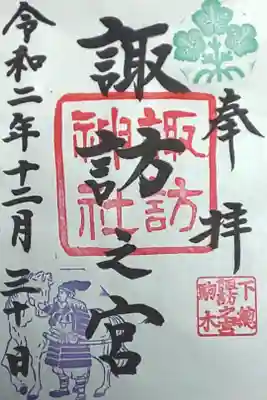 奉拝
諏訪之宮
諏訪
神社
下總
諏訪之宮
駒木
令和二年十二月三十日